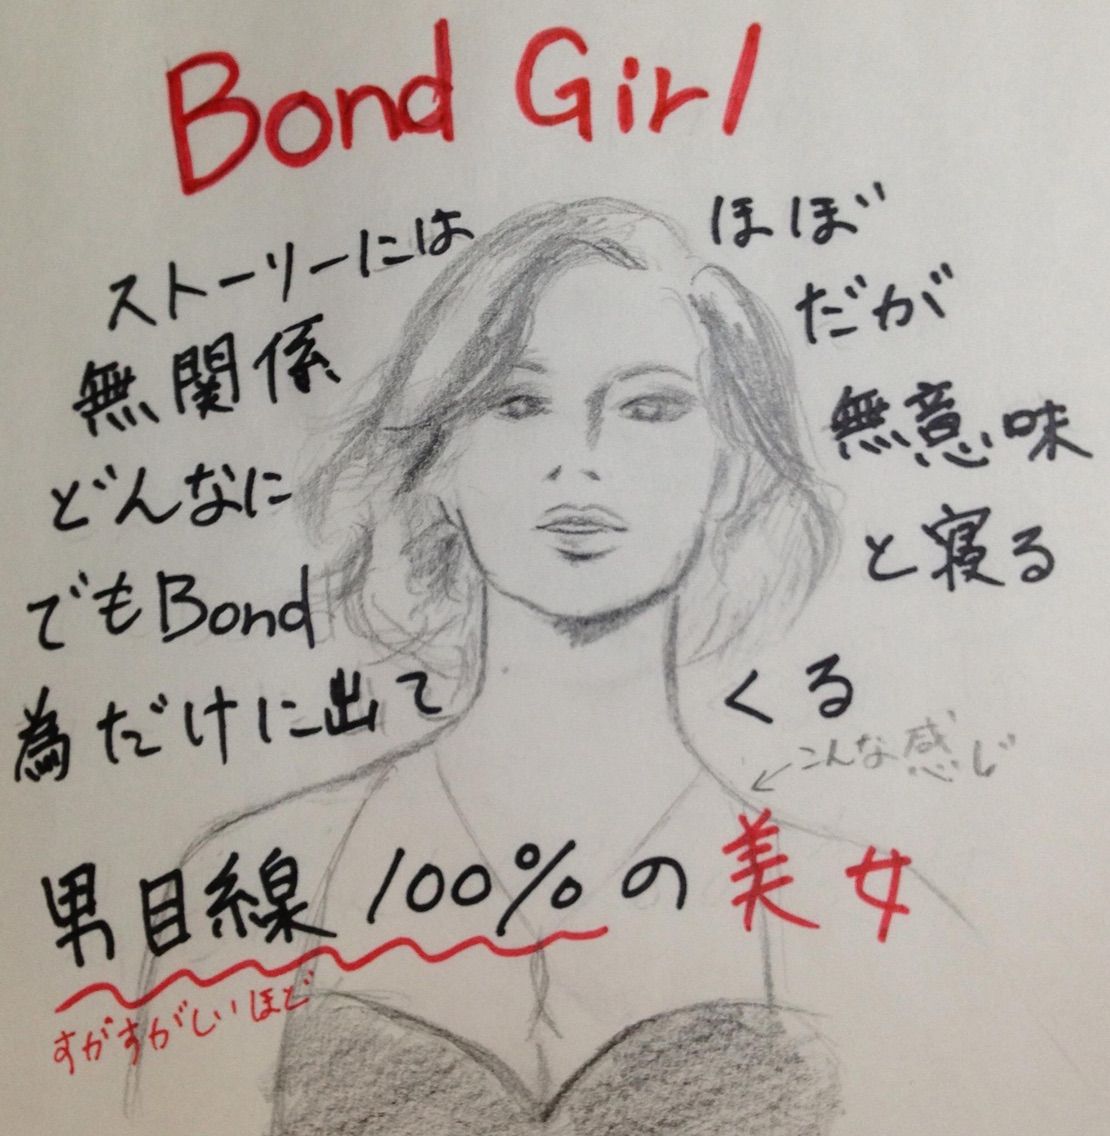 Bond Girl
ストーリーには ほぼ
無関係 だが
どんなに 無意味
でもBond と寝る
為だけに出て くる
←こんな感じ
男目線100%の美女
すがすがしいほど